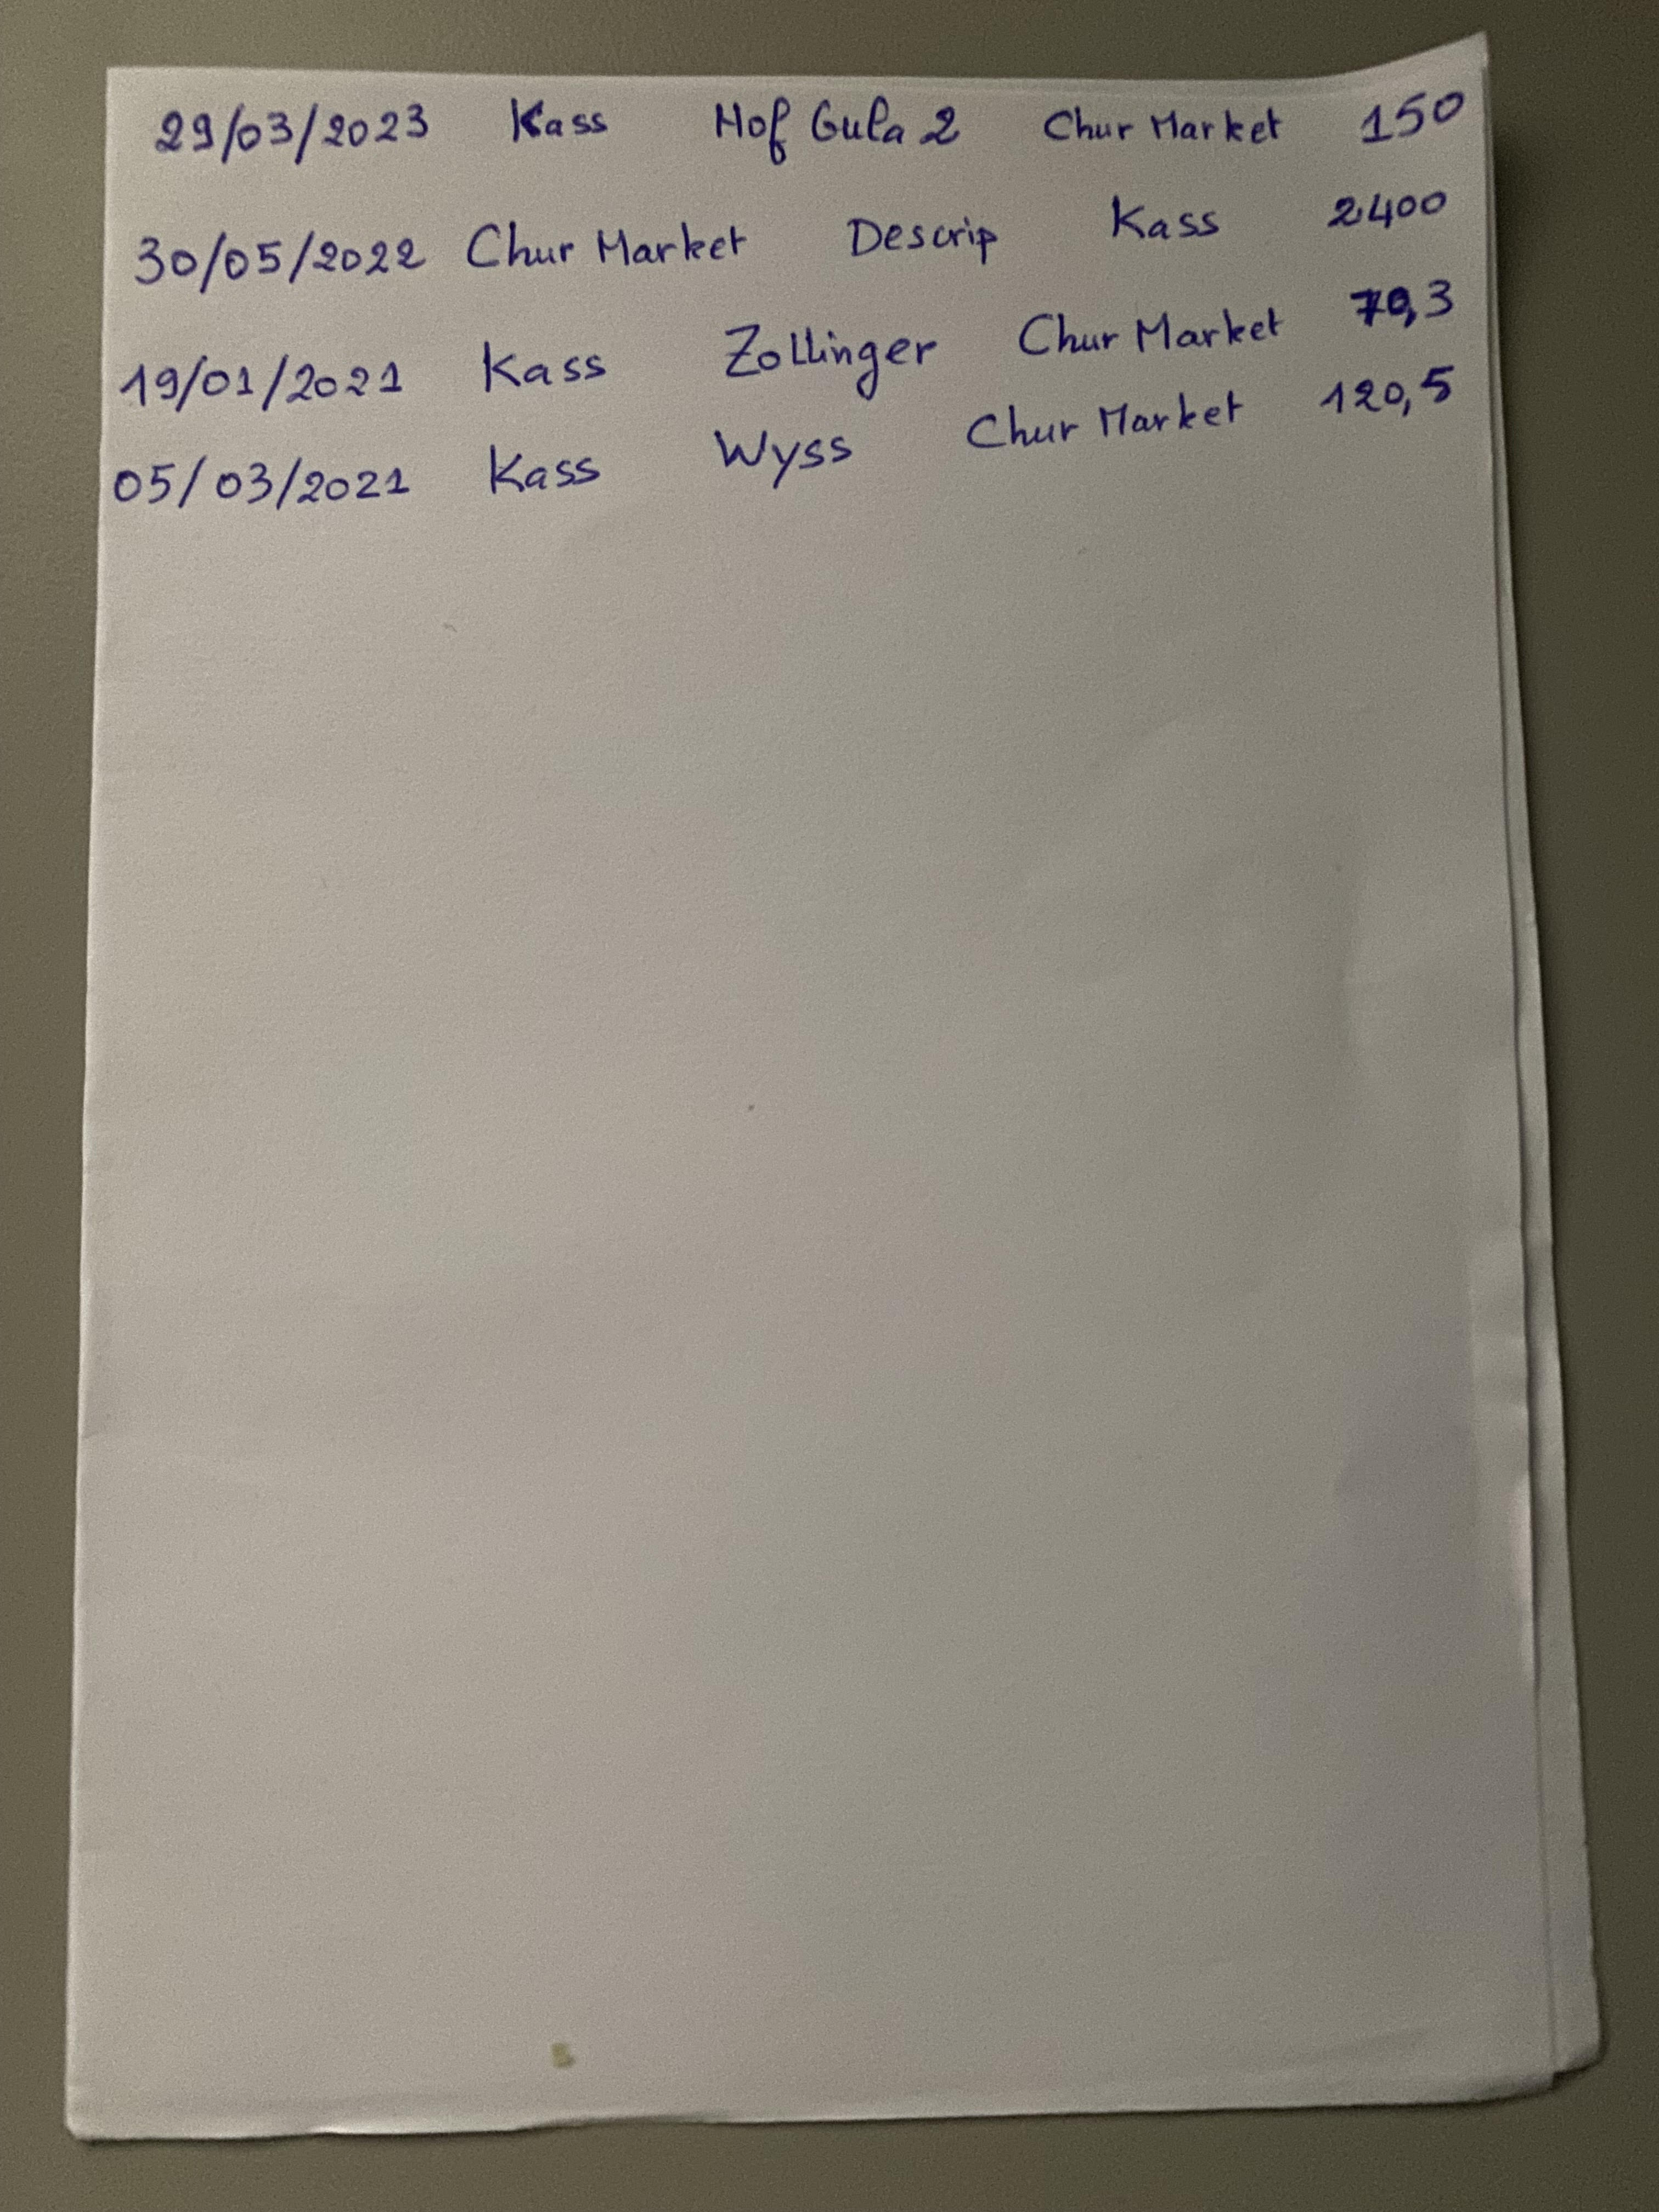 29/03/2023 Kass Hof Gula 2 Chur Market 150
30/05/2022 Chur Market Descrip Kass 2400
19/01/2021 Kass Zollinger Chur Market 70,3
05/03/2021 Kass Wyss Chur Market 120,5